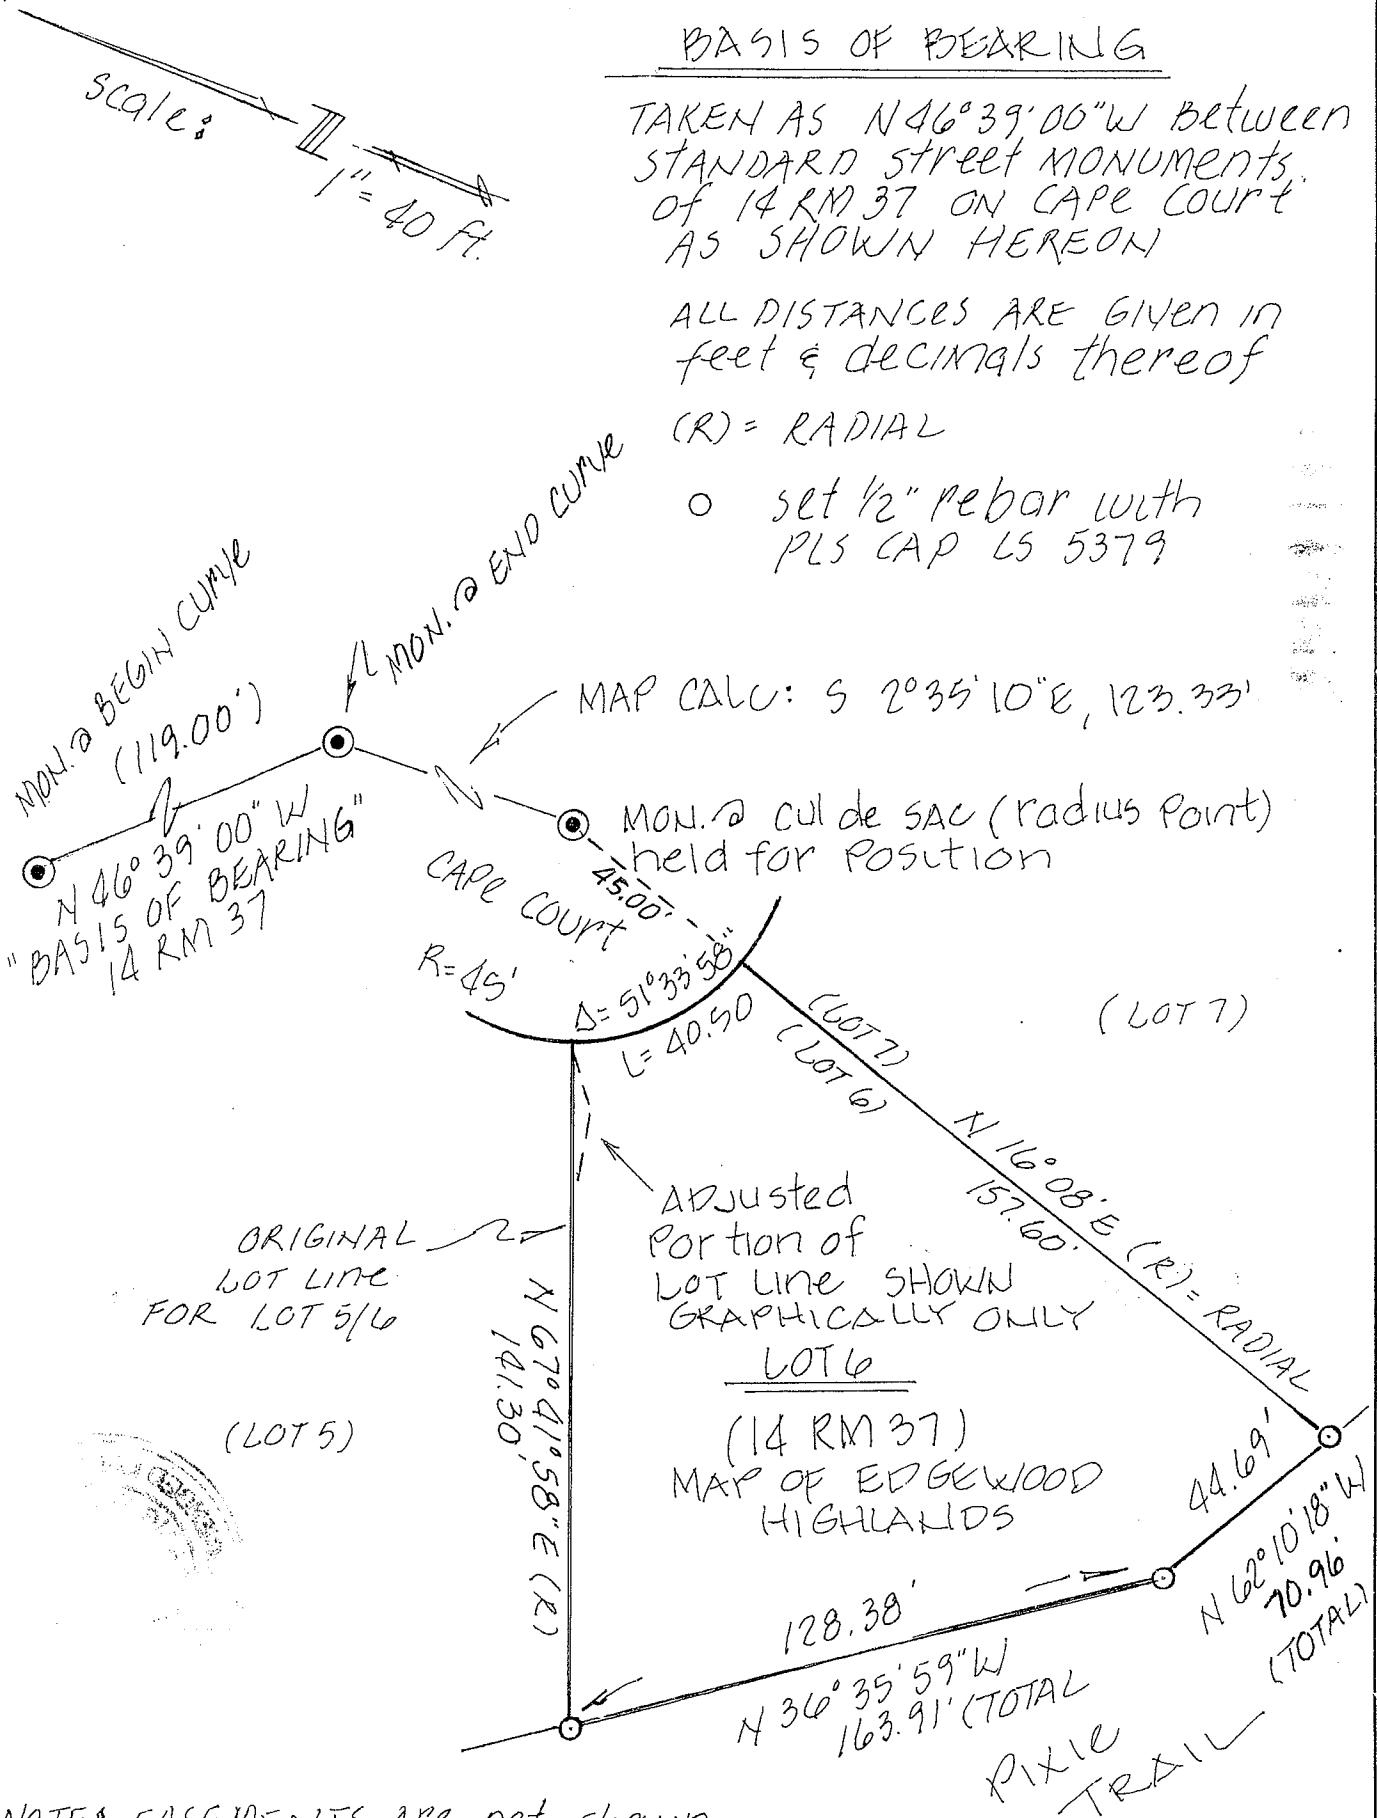 scale:
N
1" = 40 ft.
BASIS OF BEARING
TAKEN AS N46°39'00"W Between
STANDARD street MONUMENTS
of 14 RM 37 ON CAPE COURT
AS SHOWN HEREON
ALL DISTANCES ARE GIVEN in
feet & decimals thereof
(R) = RADIAL
set 1/2" rebar with
PLS CAP LS 5379
MON. @ BEGIN CURVE
(119.00')
MON. @ END CURVE
MAP CALC: S 2°35'10"E, 123.33'
N 46°39'00" W
"BASIS OF BEARING"
14 RM 37
MON. @ cul de SAC (radius Point)
held for Position
45.00'
CAPE COURT
R=45'
Δ= 51°33'58"
L= 40.50
(LOT 7)
(LOT 6)
(LOT 7)
N 16°08' E (R) = RADIAL
157.60'
ADJusted
Portion of
LOT Line SHOWN
GRAPHICALLY ONLY
ORIGINAL
LOT Line
FOR LOT 5/6
N 67°41'58"E (R)
141.30'
(LOT 5)
LOT 6
(14 RM 37)
MAP OF EDGEWOOD
HIGHLANDS
44.69'
N 62°10'18" W
70.96'
(TOTAL)
128.38'
N 36°35'59"W
163.91' (TOTAL
PIXIE
TRAIL